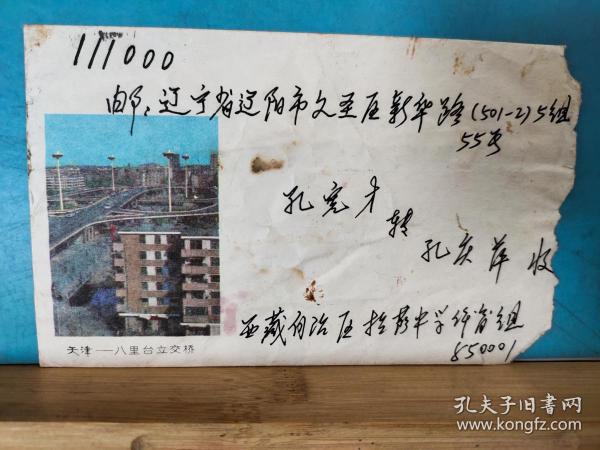 111000
邮:辽宁省辽阳市文圣区新华路(501-2)5组
55号
孔宪才
转
孔庆萍 收
西藏自治区拉萨中学体育组
850001
天津——八里台立交桥
孔夫子旧书网
www.kongfz.com